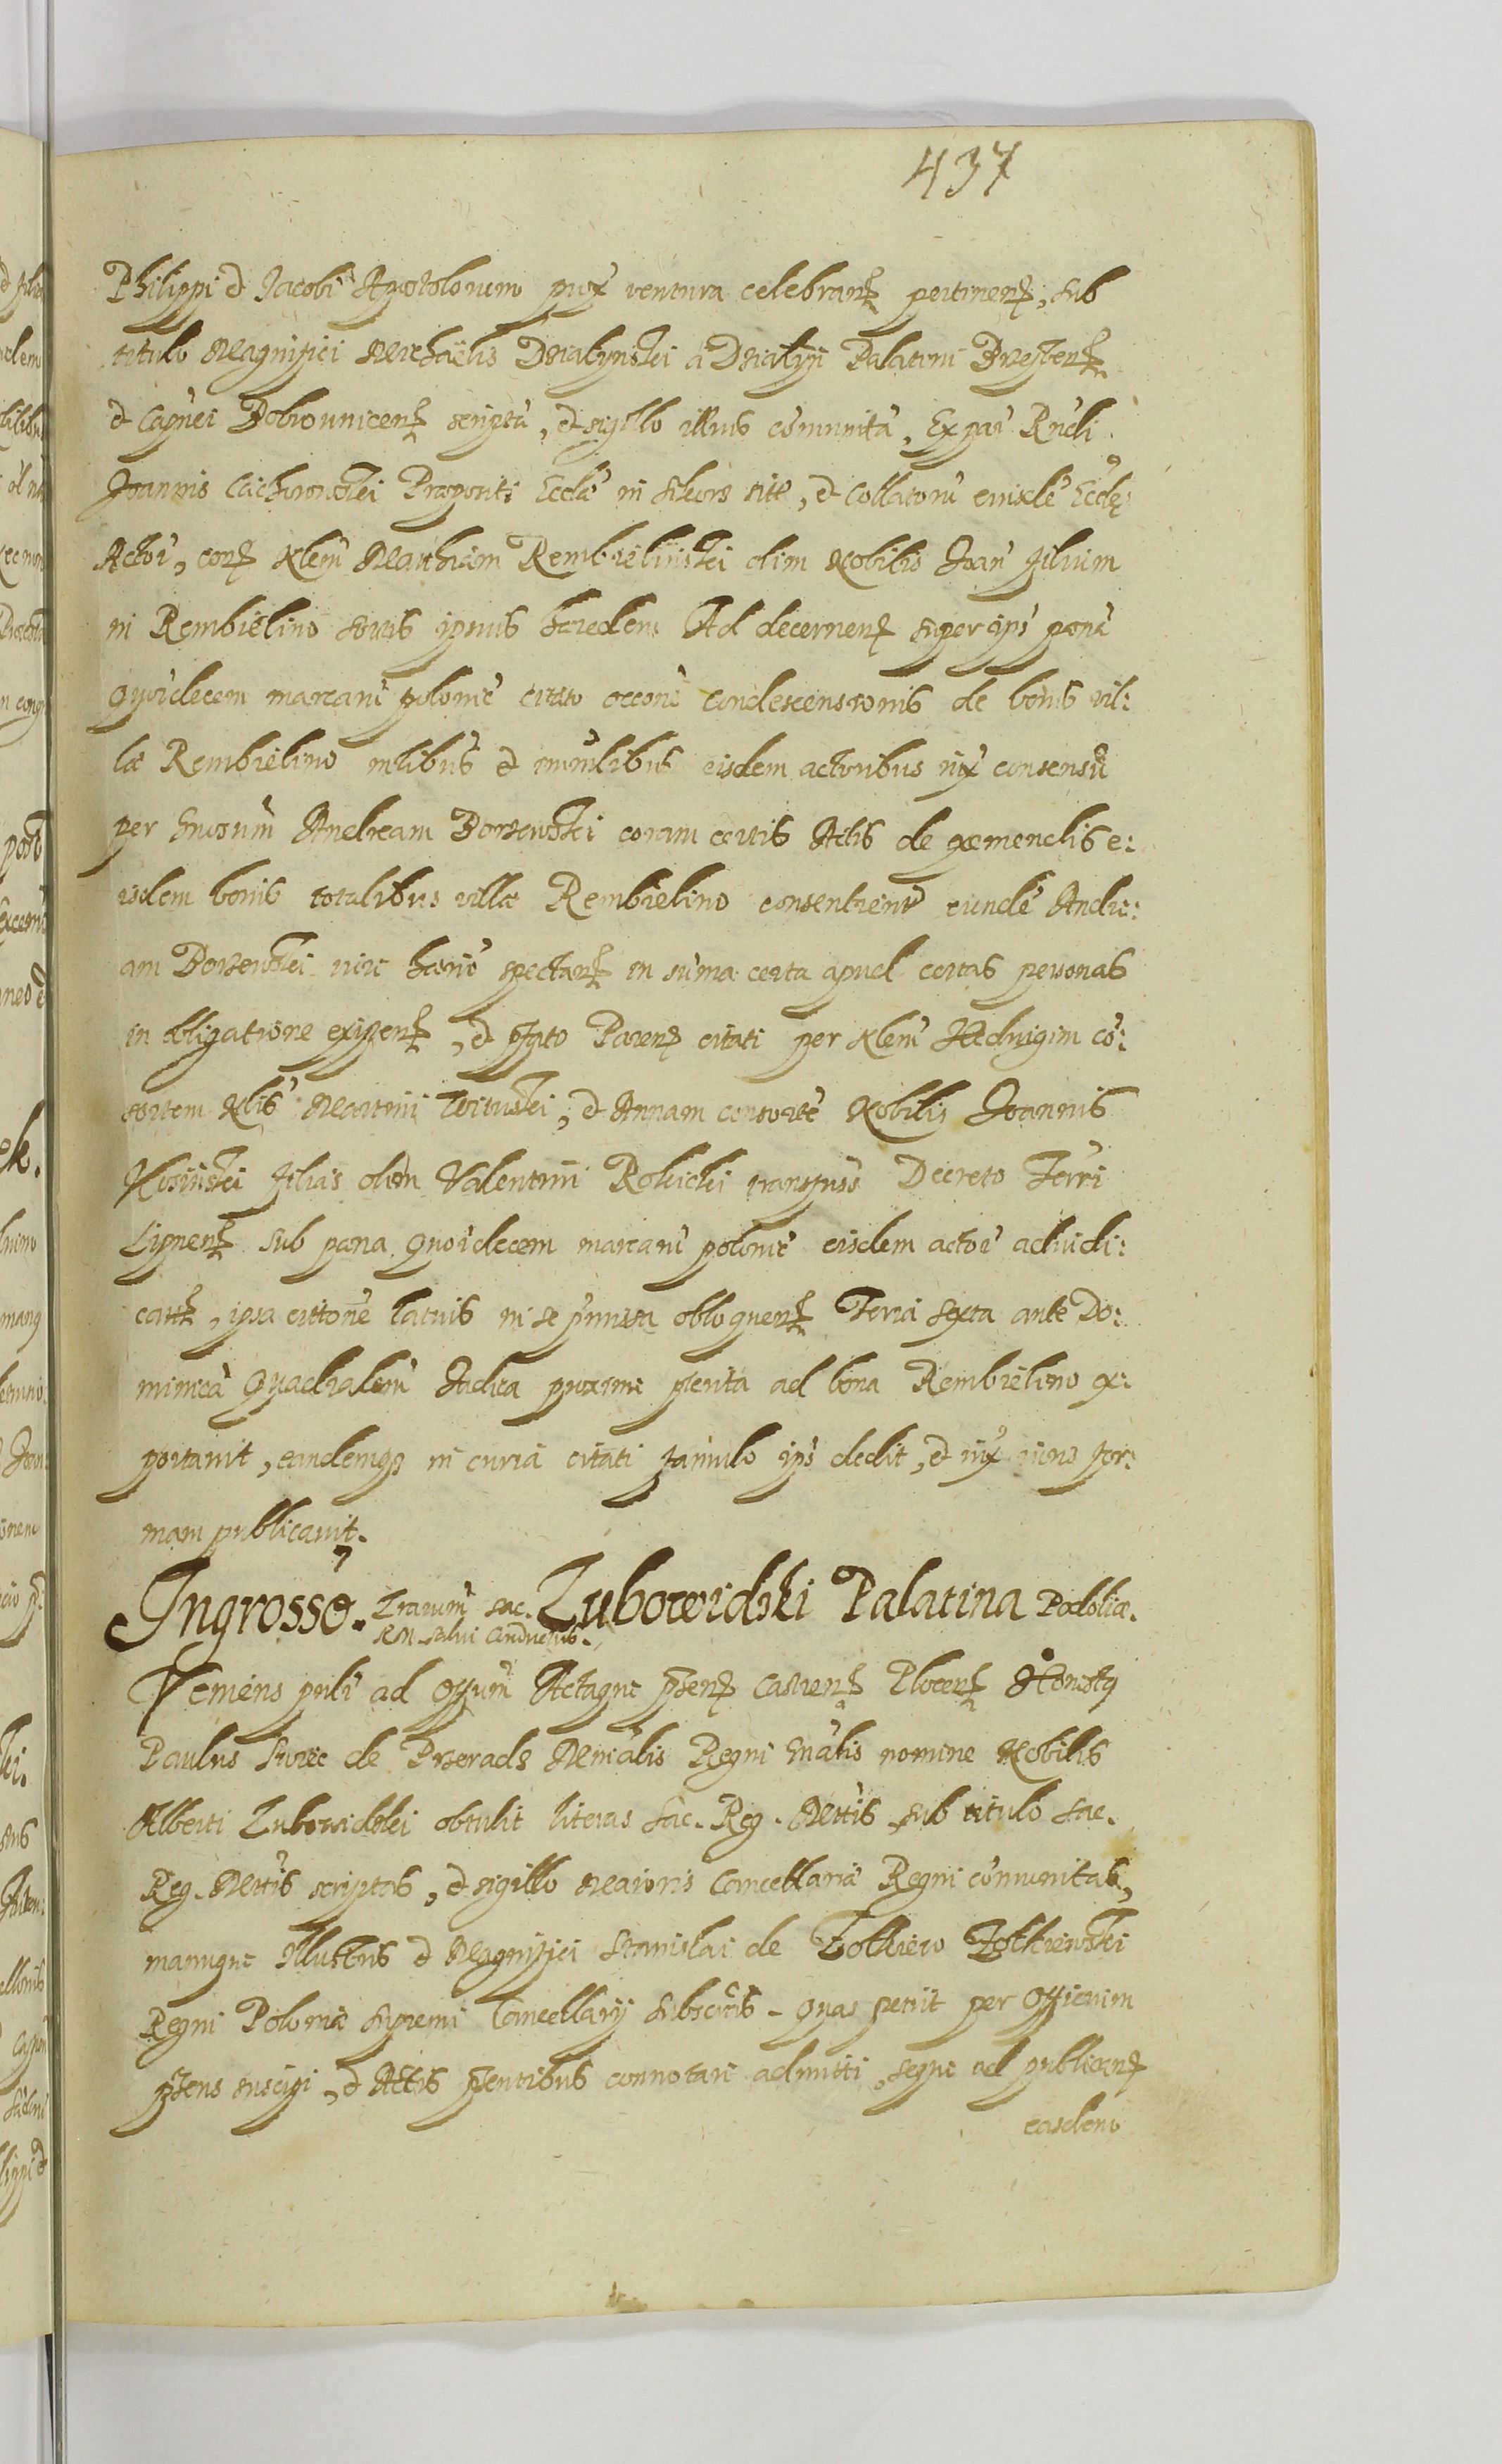 437
Philippi et Jacobi Apostolorum prox ventura celebranđ pertinenđ, sub
titulo Magnifici Michaëlis Dzialynskei a Dzialyn Palatini Brestenß
et Capnei Bobrownicenß scriptã, et sigillo illius cõmunitã, Ex par Rndi
Joannis Cichowskei Præposit: Ecclæ in sitt, et Collatorũ Ecclę
Actor, Nlem Mathiam Rembielinskei olim Nobilis Joan filium
in Rembielino sortis ipsius hæredem Ad decernenđ super ips pænã
Qřidecem marcarũ polonic citato occone condescensionis de bonis vil:
læ Rembielino mlibus et imm̃libus eisdem actoribus iux consensũ
per Gnosum Andream Borzewskei coram certis Actis de gæmendis e:
isdem bonis totalibus villæ Rembielino consentient eundẽ Andre:
am Borzewskei iure hærio spectanđ in sũma certa apud certas personas
in obligatione existenđ, et fato Parenđ citati per Nlem Hedvigim cõ:
sortem Nlis Martini, et Annam consortẽ Nobilis Joannis
filias olim Valentini Rokicki transfuss Decreto Terri
Lipnenß sub pæna Qřidecem marcarũ polonic eisdem actor adiudi:
cat, ipsa cittone latius in se p̃missa obloquenđ Feria sexta ante Do:
minicã Quadralem Iudica proxime p̃terita ad bona Rembielino ex:
portavit, eandemqz in curia citati famulo ips dedit, et iux iuris for:
mam publicavit.
Ingrosso. Lrarum sac. RM salvi conductus. Lubowidzki Palatina Podoliæ.
Veniens pnlr ad Offum Actaque p̃senđ Castrenß Plocenß Honestq
Paulus de Przeradz Mnialis Regni Gnalis nomine Nobilis
Alberti Lubowidzkei obtulit literas Sac. Reg. Mttis sub titulo Sac.
Reg. Mttis scriptas, et sigillo Maioris Cancellariæ Regni cõmunitas,
manuque Illustris et Magnifici Stanislai de Zolkiew Zolkiewskei
Regni Poloniæ Supremi Cancellarij Subscriptis - Quas petiit per Officium
p̃sens suscipi, et Actis p̃sentibus connotari admitti, seque ad publicanđ
easdem